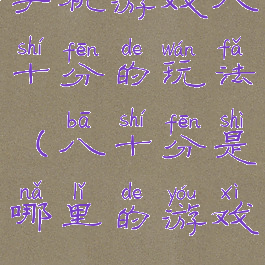 手机游戏人
shí fēn de wán fǎ
十分的玩法
bā shí fēn shì
(八十分是
nǎ lǐ de yóu xì
哪里的游戏